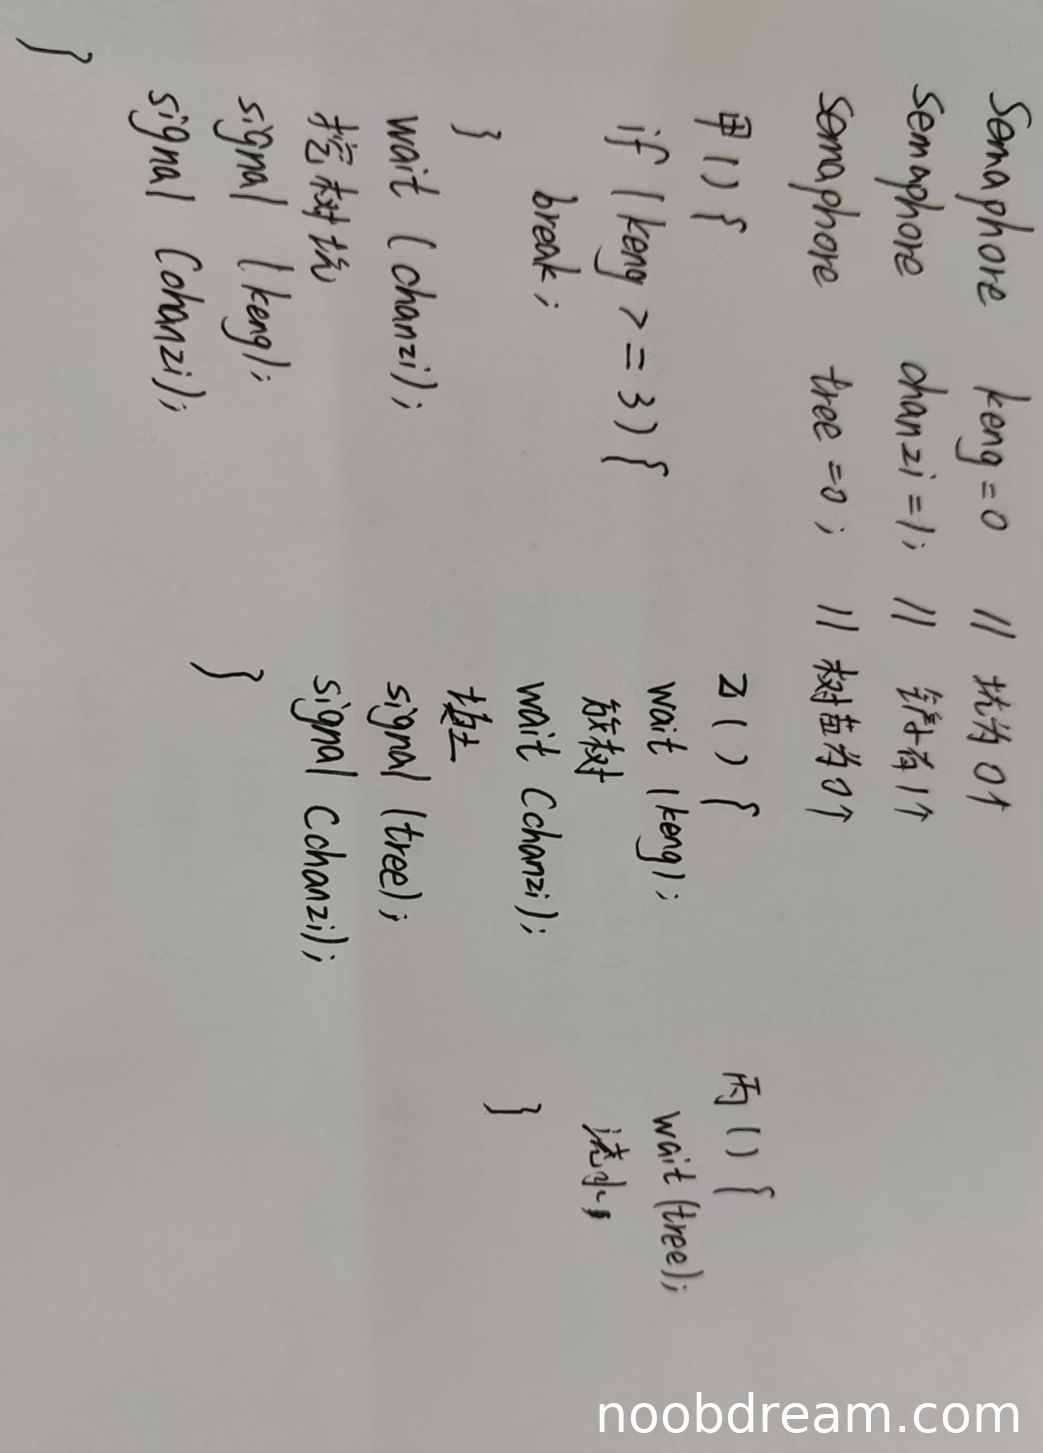 Semaphore keng = 0 // 坑为0个
Semaphore chanzi = 1; // 铲子有1个
Semaphore tree = 0; // 树苗为0个
甲 () {
if (keng >= 3) {
break;
}
wait (chanzi);
挖树坑
signal (keng);
signal (chanzi);
}
乙 () {
wait (keng);
放树
wait (chanzi);
填土
signal (tree);
signal (chanzi);
}
丙 () {
wait (tree);
浇水
}
noobdream.com